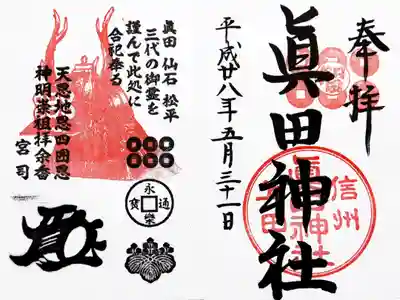 奉拝
眞田神社
平成廿八年五月三十一日
信州
眞田神社
上田
眞田 仙石 松平
三代の御霊を
謹んで此処に
合祀奉る
天恩地恩四国恩
神明崇祖拝余香
宮司
永樂通寳